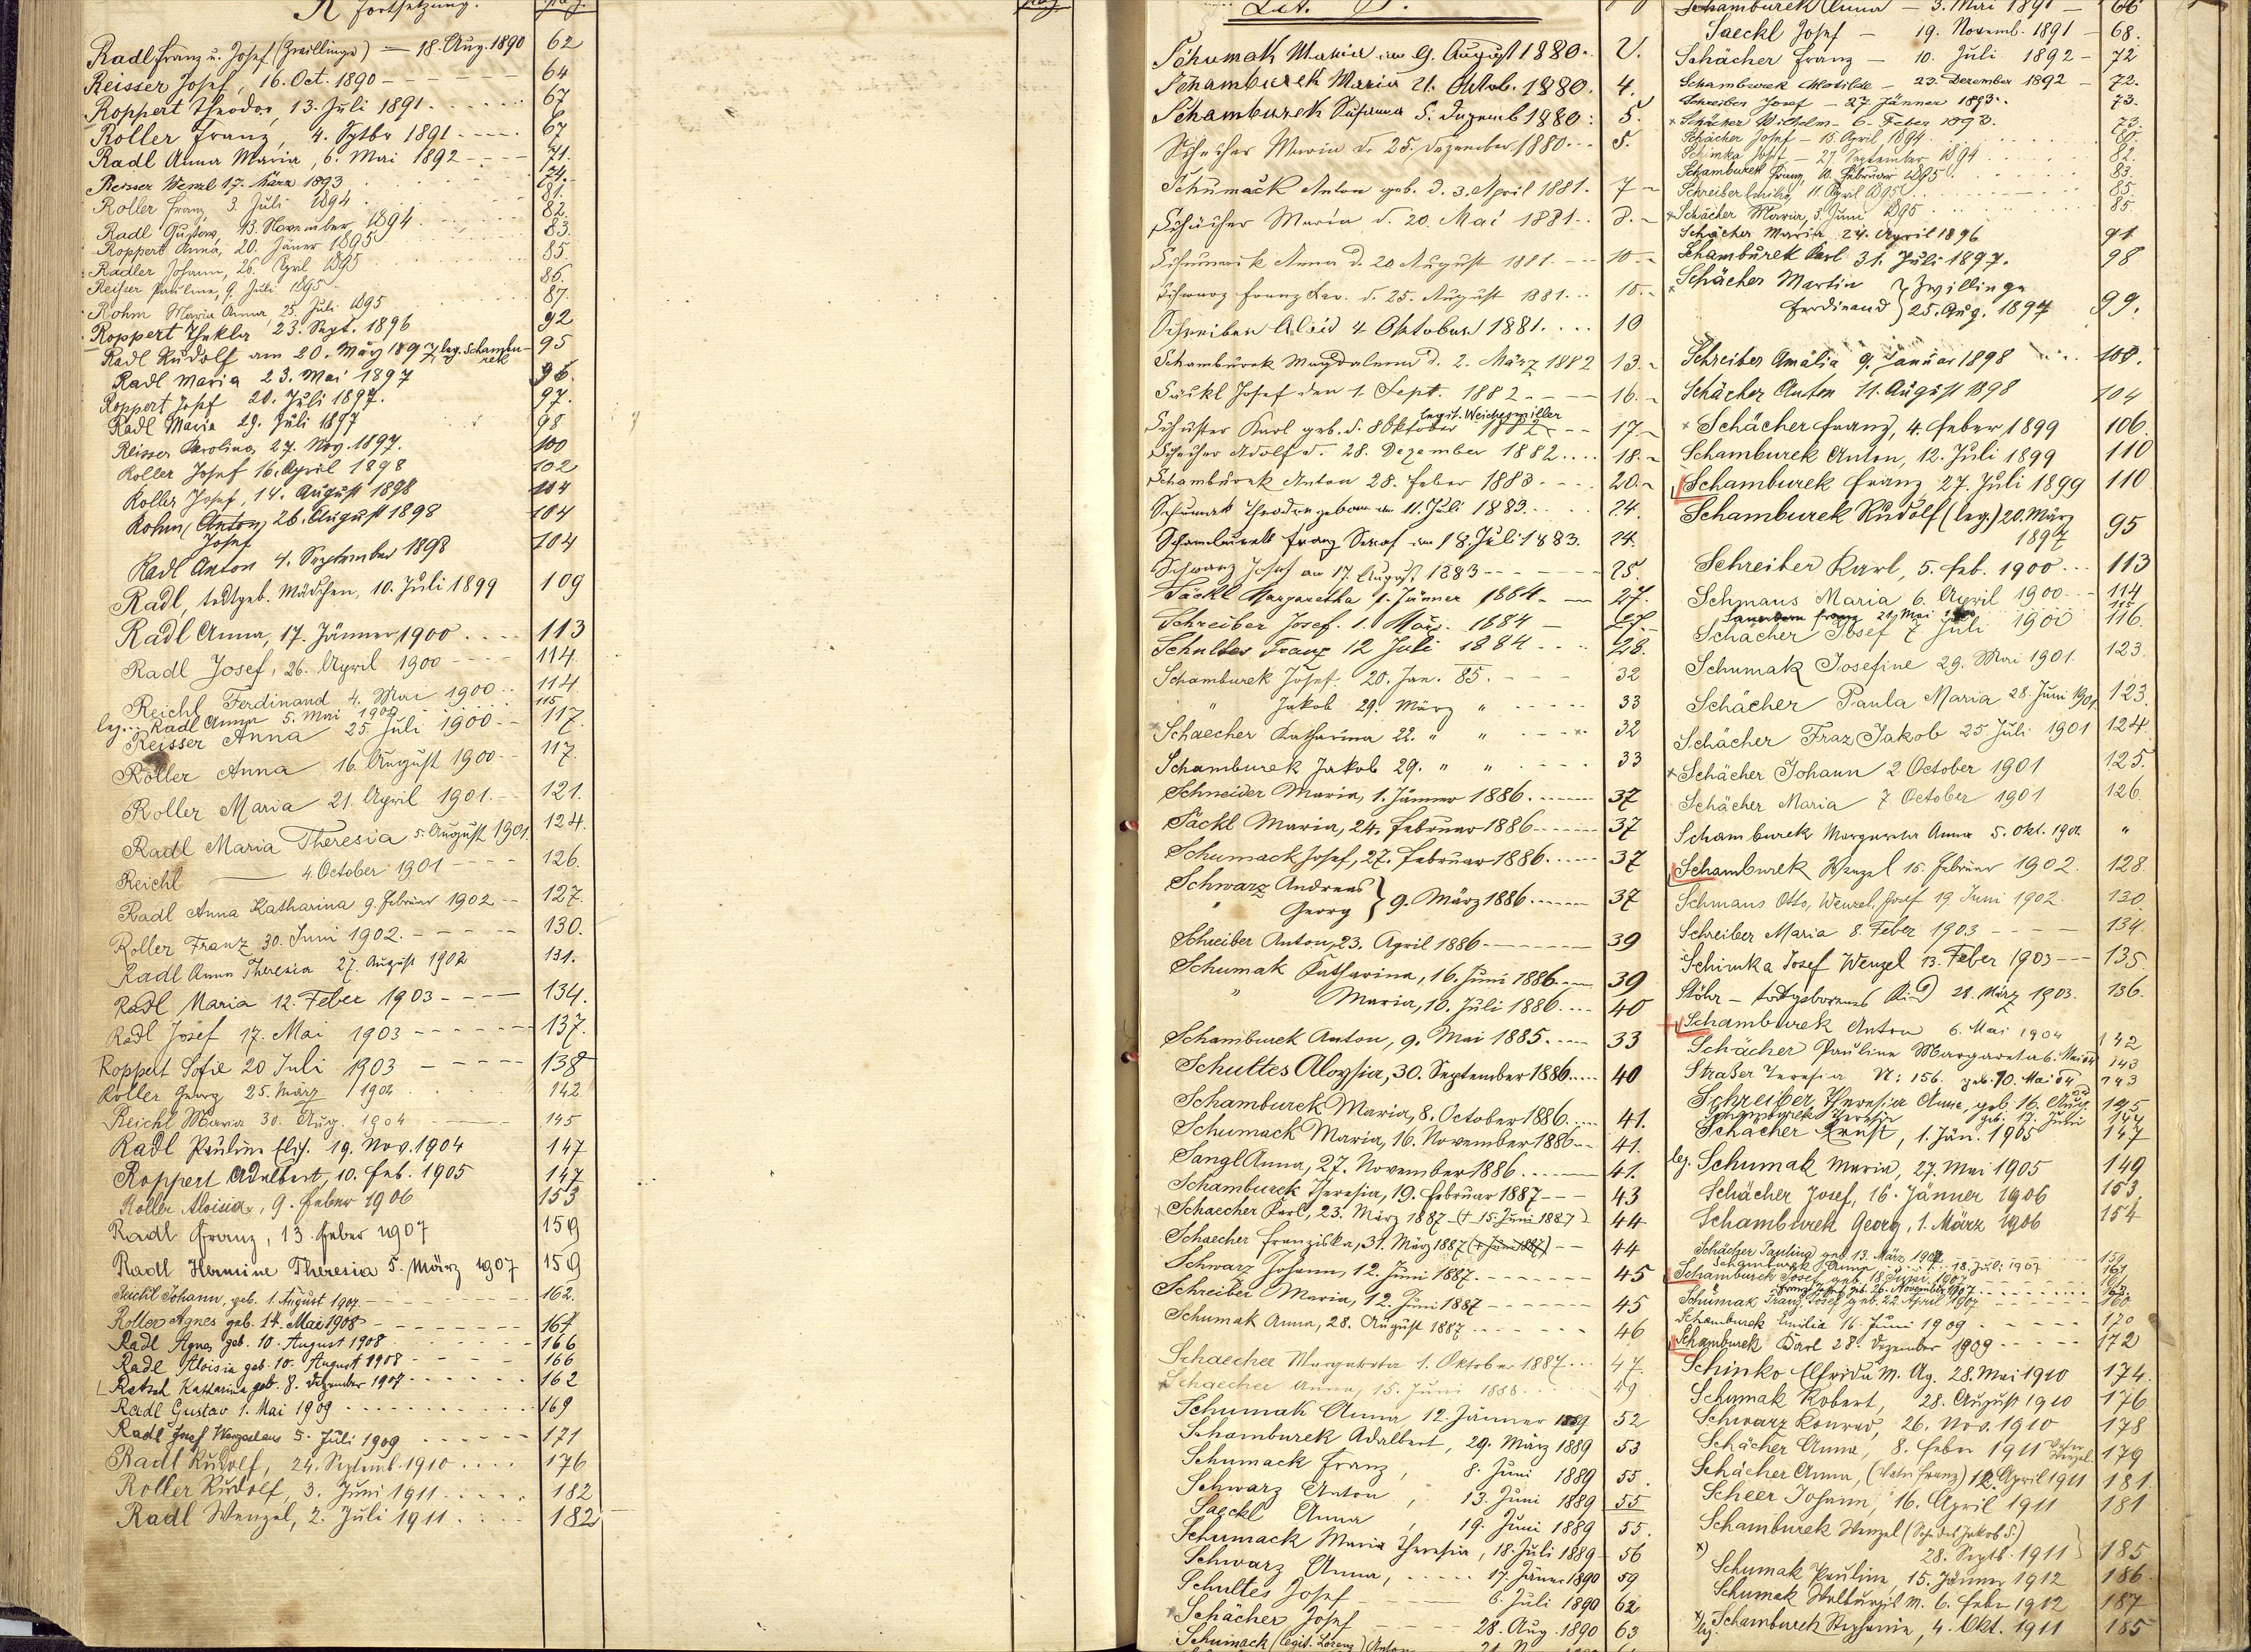 R Fortsetzung.
Radl Franz u. Josef (Zwillinge) — 18. Aug. 1890 62
Reisser Josef, 16. Oct. 1890 64
Roppert Theodor, 13. Juli 1891 67
Roller Franz, 4. Sptbr 1891 67
Radl Anna Maria, 6. Mai 1892 71.
Reisser Wenzl 17. März 1893 74.
Roller Franz 3. Juli 1894 81.
Radl Gustav, 13. November 1894 82.
Roppert Anna, 20. Jäner 1895 83.
Radler Johann, 26. April 1895 85.
Reisser Pauline, 9. Juli 1895 86.
Rohm Maria Anna, 25. Juli 1895 87.
Roppert Thekla 23. Sept. 1896 92
Radl Rudolf am 20. März 1897 leg. Schamburek 95
Radl Maria 23. Mai 1897 96.
Roppert Josef 20. Juli 1897. 97.
Radl Maria 29. Juli 1897 98
Reisser Karolina, 27. Nov. 1897. 100
Roller Josef 16. April 1898 102
Roller Josef, 14. August 1898 104
Rohm (Anton) 26. August 1898 104
Josef
Radl Anton 4. September 1898 104
Radl, todtgeb. Mädchen, 10. Juli 1899 109
Radl Anna, 17. Jänner 1900 113
Radl Josef, 26. April 1900 114.
Reichl Ferdinand 4. Mai 1900 114.
leg. Radl Anna 5. Mai 1900 115
Reisser Anna 25. Juli 1900 117.
Roller Anna 16. August 1900 117.
Roller Maria 21. April 1901. 121.
Radl Maria Theresia 5. August 1901. 124.
Reichl — 4. October 1901 126.
Radl Anna Katharina 9. Februar 1902 127.
Roller Franz 30. Juni 1902. 130.
Radl Anna Theresia 27. August 1902 131.
Radl Maria 12. Feber 1903 134.
Radl Josef 17. Mai 1903 137.
Roppert Sofie 20 Juli 1903 138
Roller Georg 25. März 1904 142
Reichl Maria 30. Aug. 1904 145
Radl Pauline Elis. 19. Nov. 1904 147
Roppert Adalbert, 10. Feb. 1905 147
Roller Aloisia, 9. Feber 1906 153
Radl Franz, 13. Feber 1907 159
Radl Hermine Theresia 5. März 1907 159
Reichl Johann, geb. 1. August 1907 162.
Roller Agnes geb. 14. Mai 1908 167
Radl Agnes geb. 10. August 1908 166
Radl Aloisia geb. 10. August 1908 166
Ratsch Katharina geb. 8. Dezember 1907 162
Radl Gustav 1. Mai 1909 169
Radl Josef Wenzeslaus 5. Juli 1909 171
Radl Rudolf, 24. Septemb. 1910 176
Roller Rudolf, 3. Juni 1911 182
Radl Wenzel, 2. Juli 1911 182
Lit. S.
Schumak Maria am 9. August 1880. 2.
Schamburek Maria 21. Oktob. 1880. 4.
Schamburek Susanna 5. Dezemb 1880. 5.
Schecher Maria d. 25. Dezember 1880. 5.
Schumack Anton geb. d. 3. April 1881. 7
Schächer Maria d. 20. Mai 1881. 8.
Schumack Anna d. 20 August 1881. 10
Schwarz Franz Xav. d. 25. August 1881. 10.
Schreiber Alois 4 Oktober 1881. 10
Schamburek Magdalena d. 2. März 1882 13.
Säckl Josef den 1. Sept. 1882 16.
legit. Weichesmiller
Schuster Karl geb. d. 8 Oktober 1882 17
Schecher Adolf d. 28. Dezember 1882 18.
Schamburek Anton 28. Feber 1883 20.
Schumak Theodor geboren am 11. Juli 1883. 24.
Schamburek Franz Seraf am 18. Juli 1883. 24.
Schwarz Josef am 17. August 1883 25.
Säckl Margaretha 1. Jänner 1884 27.
Schreiber Josef. 1. März. 1884 27.
Schultes Franz 12 Juli 1884 28.
Schamburek Josef. 20. Jan. 85. 32
" Jakob 29. März " 33
Schaecher Katharina 22. " " 32
Schamburek Jakob 29. " " 33
Schneider Maria, 1. Jänner 1886. 37
Säckl Maria, 24. Februar 1886 37
Schumack Josef, 27. Februar 1886. 37
Schwarz Andreas
" Georg } 9. März 1886. 37
Schreiber Anton, 23. April 1886 39
Schumak Katharina, 16. Juni 1886. 39
" Maria, 10. Juli 1886. 40
Schamburek Anton, 9. Mai 1885. 33
Schultes Aloysia, 30. September 1886. 40
Schamburek Maria, 8. October 1886. 41.
Schumack Maria, 16. November 1886 41.
Sangl Anna, 27. November 1886. 41.
Schamburek Theresia, 19. Februar 1887 43
Schaecher Karl, 23. März 1887 († 15. Juni 1887) 44
Schaecher Franziska, 31. März 1887 († Juni 1887) 44
Schwarz Johann, 12. Juni 1887. 45
Schreiber Maria, 12. Juni 1887 45
Schumak Anna, 28. August 1887. 46
Schaecher Margareta 1. Oktober 1887 47.
Schaecher Anna, 15. Juni 1888. 49
Schumak Anna 12. Jänner 1889 52
Schamburek Adalbert, 29. März 1889 53
Schumack Franz, 8. Juni 1889 55.
Schwarz Anton, 13. Juni 1889 55
Saeckl Anna, 19. Juni 1889 55.
Schumack Maria Theresia, 18. Juli 1889 56
Schwarz Anna, 17. Jänner 1890 59
Schultes Josef 6. Juli 1890 62
Schächer Josef 28. Aug. 1890 63
Schumack (legit. Lorenz) Anton
Schamburek Anna — 3. Mai 1891 — 66
Saeckl Josef — 19. Novemb. 1891 — 68.
Schächer Franz — 10. Juli 1892 — 72
Schamburek Mathilde — 23. Dezember 1892 — 72.
Schreiber Josef — 27 Jänner 1893. 73.
Schächer Wilhelm — 6. Feber 1893. 73.
Schächer Josef — 15. April 1894 80.
Schimka Josef, — 27. September 1894 82.
Schamburek Franz, 10. Februar 1895 83.
Schreiber Emilie, 11. April 1895 85.
Schächer Maria, 5. Juni 1895 85
Schächer Maria 24. April 1896 91
Schamburek Karl 31. Juli 1897. 98
Schächer Martin
Ferdinand } Zwillinge 25. Aug. 1897 99.
Schreiber Amalia 9. Januar 1898 100.
Schächer Anton 11. August 1898 104
Schächer Franz, 4. Feber 1899 106.
Schamburek Anton, 12. Juli 1899 110
Schamburek Franz 27. Juli 1899 110
Schamburek Rudolf (leg.) 20. März 1897 95
Schreiber Karl, 5. Feb. 1900 113
Schmaus Maria 6. April 1900 114
Franz 21. Mai 115
Schächer Josef 7 Juli 1900 116.
Schumak Josefine 29. Mai 1901. 123.
Schächer Paula Maria 28. Juni 1901. 123.
Schächer Fraz Jakob 25 Juli 1901 124.
Schächer Johann 2. October 1901 125.
Schächer Maria 7 October 1901 126.
Schamburek Margareta Anna 5. Okt. 1901. "
Schamburek Wenzel 15. Februar 1902. 128.
Schmaus Otto, Wenzel, Josef 19 Juni 1902. 130.
Schreiber Maria 8. Feber 1903 134.
Schimka Josef Wenzel 13. Feber 1903 135
Stöhr — todtgeborenes Kind 21. März 1903. 136.
Schamburek Anton 6. Mai 1904 142
Schächer Pauline Margareta 6. Mai 04 143
Straßer Teresia N: 156. geb. 10. Mai 04 143
Schreiber, Theresia Anna, geb. 16. Aug. 145
Schamburek Theresia geb. 17. Juli 144
Schächer Ernst, 1. Jän. 1905 147
leg. Schumak Maria, 27. Mai 1905 149
Schächer Josef, 16. Jänner 1906 153.
Schamburek Georg, 1. März 1906 154
Schächer Paulina geb. 13. März 1907 159
Schamburek Anna 18. Juli 1907 161
Schamburek Josef geb. 18. Juni 1907 161
Franz Josef geb. 26. November 1907
Schumak Franz Josef geb. 22. April 1907 160.
Schamburek Emilia 16. Juni 1909 170
Schamburek Karl 28. Dezember 1909 172
Schinko Elfrida M. Ag. 28. Mai 1910 174.
Schumak Robert, 28. August 1910 176
Schwarz Konrad, 26. Nov. 1910 178
Schächer Anna, 8. Feber 1911 Vater Wenzel 179
Schächer Anna, (Vater Franz) 12. April 1911 181.
Scheer Johann, 16. April 1911 181
Schamburek Wenzel (Sohn des Jakob S.)
x) 28. Septb. 1911 185
Schumak Pauline, 15. Jänner 1912 186
Schumak Walburgis M. 6. Feber 1912 187
x) leg. Schamburek Stephanie, 4. Okt. 1911 185